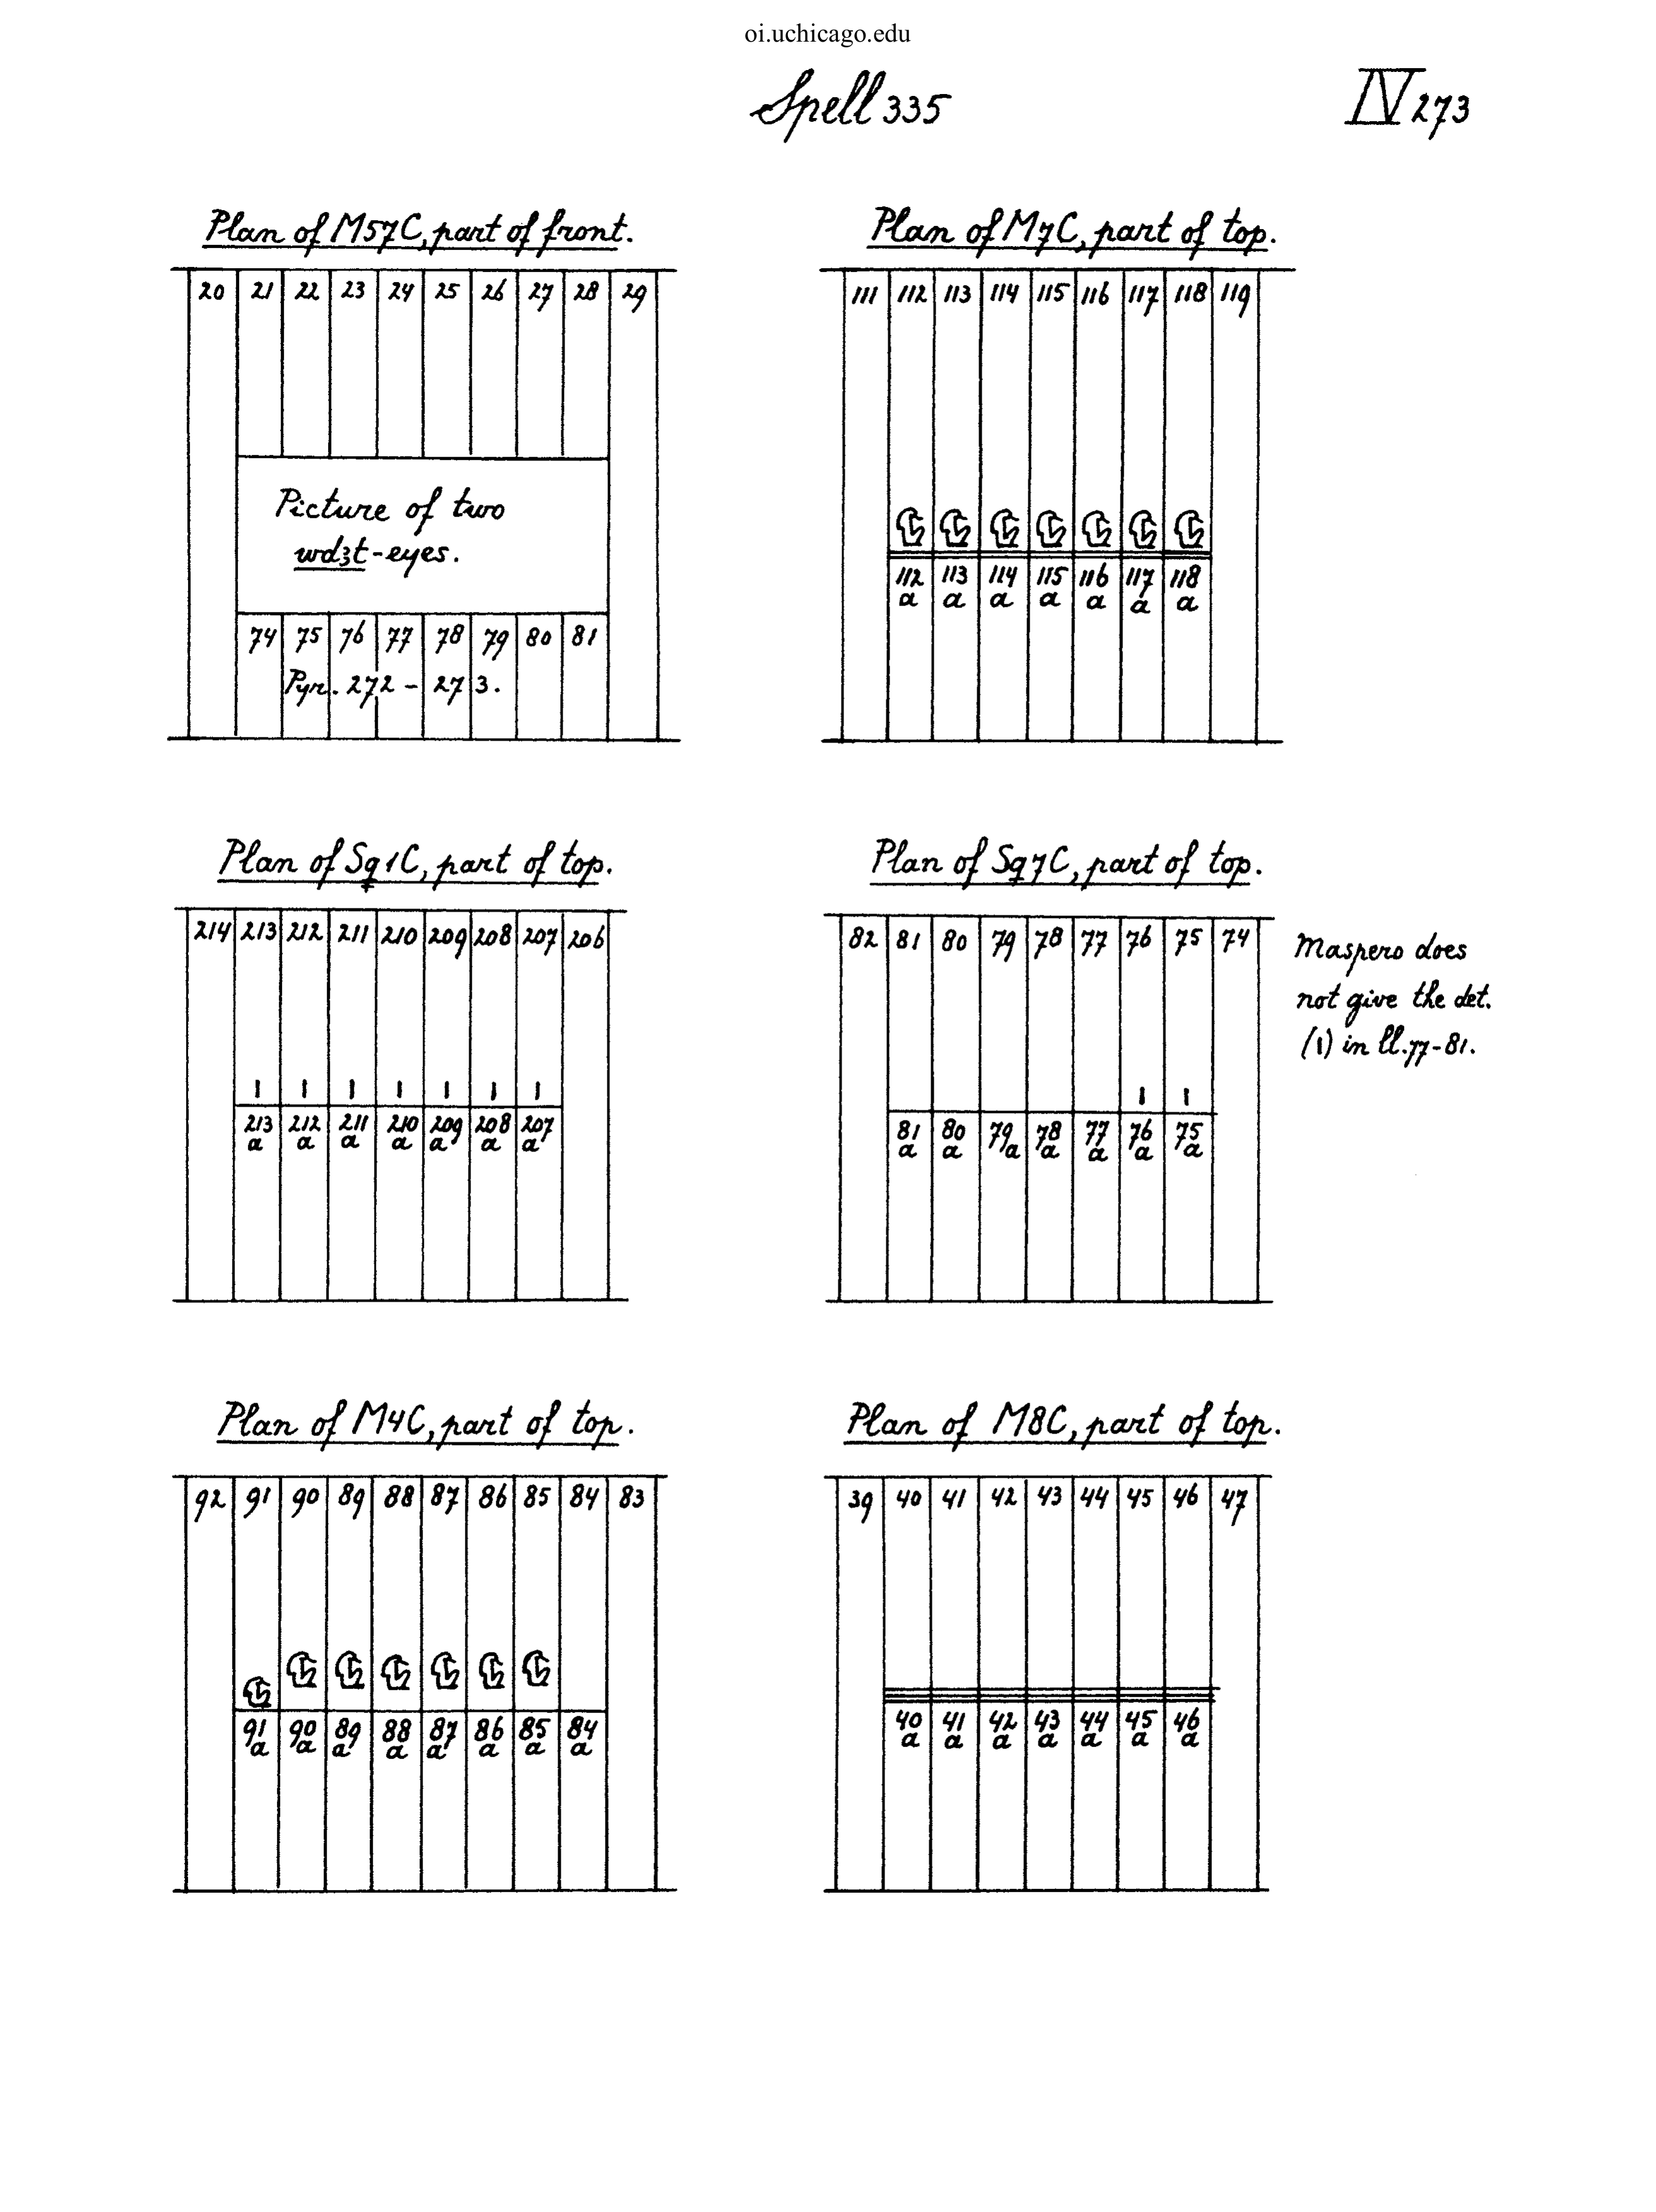 oi.uchicago.edu
Spell 335
IV 273
Plan of M57C, part of front.
20 21 22 23 24 25 26 27 28 29
Picture of two
wdȝt-eyes.
74 75 76 77 78 79 80 81
Pyr. 272 - 273.
Plan of M7C, part of top.
111 112 113 114 115 116 117 118 119
112 113 114 115 116 117 118
a a a a a a a
Plan of Sq1C, part of top.
214 213 212 211 210 209 208 207 206
213 212 211 210 209 208 207
a a a a a a a
Plan of Sq7C, part of top.
82 81 80 79 78 77 76 75 74
81 80 79 78 77 76 75
a a a a a a a
Maspero does
not give the det.
(I) in ll. 77-81.
Plan of M4C, part of top.
92 91 90 89 88 87 86 85 84 83
91 90 89 88 87 86 85 84
a a a a a a a a
Plan of M8C, part of top.
39 40 41 42 43 44 45 46 47
40 41 42 43 44 45 46
a a a a a a a